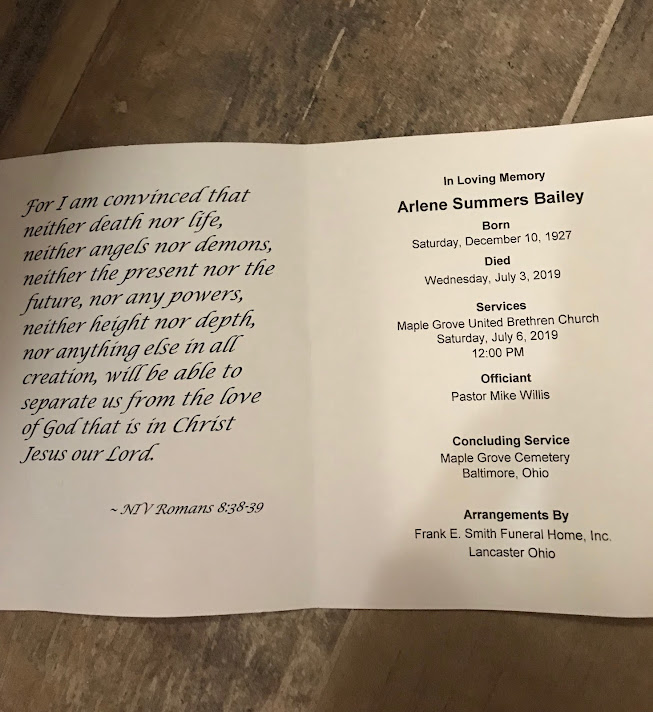 For I am convinced that
neither death nor life,
neither angels nor demons,
neither the present nor the
future, nor any powers,
neither height nor depth,
nor anything else in all
creation, will be able to
separate us from the love
of God that is in Christ
Jesus our Lord.
~ NIV Romans 8:38-39
In Loving Memory
Arlene Summers Bailey
Born
Saturday, December 10, 1927
Died
Wednesday, July 3, 2019
Services
Maple Grove United Brethren Church
Saturday, July 6, 2019
12:00 PM
Officiant
Pastor Mike Willis
Concluding Service
Maple Grove Cemetery
Baltimore, Ohio
Arrangements By
Frank E. Smith Funeral Home, Inc.
Lancaster Ohio